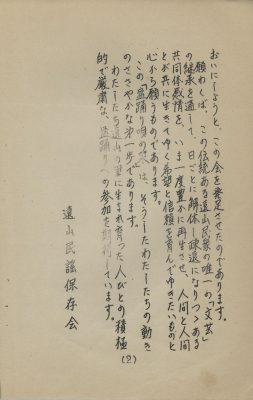 おいにしようと、この会を発足させたのであります。
願わくば、この伝統ある遠山民衆の唯一の「文芸」
の継承を通して、日ごとに解体し疎遠になりつつある
共同体感情を、いま一度豊かに再生させ、人間と人間
とが共に生きてゆく希望と信頼を育んでゆきたいものと
心から願うものであります。
この「盆踊り唄の 」は、そうしたわたしたちの動き
のささやかな第一歩であります。
わたしたち遠山の里に生まれ育った人びとの積極
的で厳粛な、盆踊りへの参加を期待しています。
遠山民謡保存会
(2)